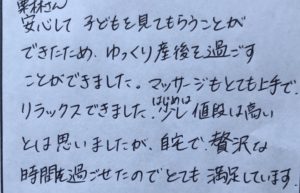 栗林さん
安心して 子どもを見てもらうことが
できたため、ゆっくり産後を過ごす
ことができました。マッサージもとても上手で、
リラックスできました。はじめは少し値段は高い
とは思いましたが、自宅で、贅沢な
時間を過ごせたのでとても 満足しています